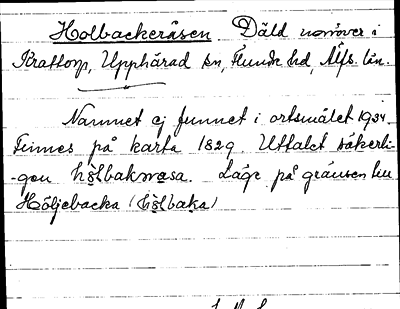 Holbackeråsen. Däld norröver i
Brattorp, Upphärad sn, Flundre hd, Älfs. län.
Namnet ej funnet i ortsmålet 1934.
Finnes på karta 1829. Uttalet säkerli-
-gen hölbakråsa. Läge på gränsen till
Höljebacka (hölbaka)